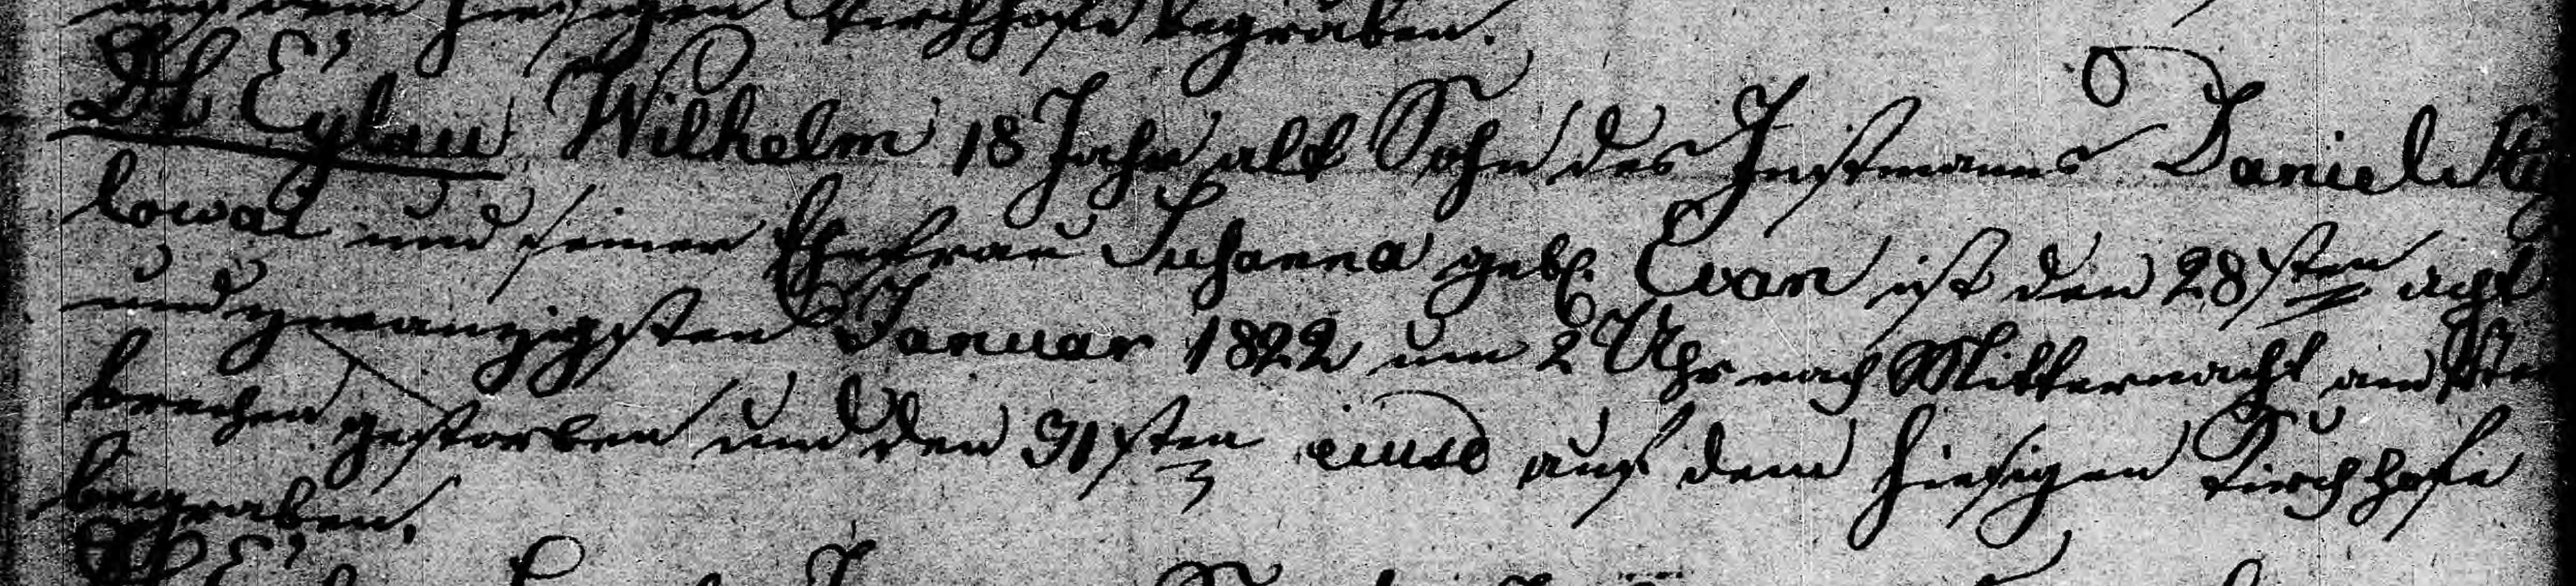 auf dem hiesigen Kirchhofe begraben.
Dt Eylau Wilhelm 18 Jahr alt Sohn des Instmanns Daniel
lowai und seiner Ehefrau Suhanna geb. Evan ist den 28sten acht
und zwanzigsten Januar 1822 um 2 Uhr nach Mitternacht am
brechen gestorben und den 31sten eiusd auf dem hiesigen Kirchhofe
begraben.